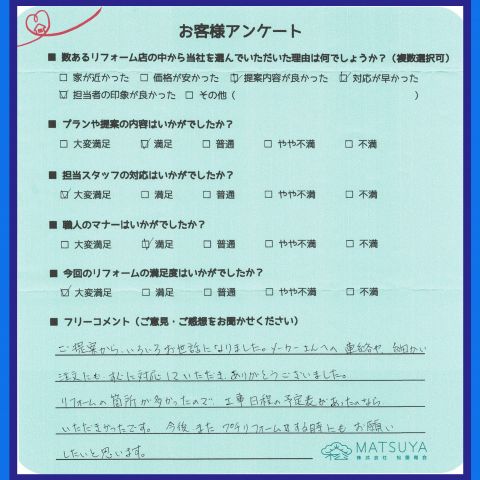 お客様アンケート
■ 数あるリフォーム店の中から当社を選んでいただいた理由は何でしょうか？（複数選択可）
□ 家が近かった □ 価格が安かった ☑ 提案内容が良かった ☑ 対応が早かった
☑ 担当者の印象が良かった □ その他（ ）
■ プランや提案の内容はいかがでしたか？
□ 大変満足 ☑ 満足 □ 普通 □ やや不満 □ 不満
■ 担当スタッフの対応はいかがでしたか？
☑ 大変満足 □ 満足 □ 普通 □ やや不満 □ 不満
■ 職人のマナーはいかがでしたか？
□ 大変満足 ☑ 満足 □ 普通 □ やや不満 □ 不満
■ 今回のリフォームの満足度はいかがでしたか？
☑ 大変満足 □ 満足 □ 普通 □ やや不満 □ 不満
■ フリーコメント（ご意見・ご感想をお聞かせください）
ご提案から、いろいろお世話になりました。メーカーさんへの連絡や 細かい
注文にも、すぐに対応していただき、ありがとうございました。
リフォームの箇所が多かったので、工事日程の予定表があったのなら
いただきたかったです。 今後 また プチリフォームをする時にも お願い
したいと思います。
MATSUYA
株式会社 松屋商会